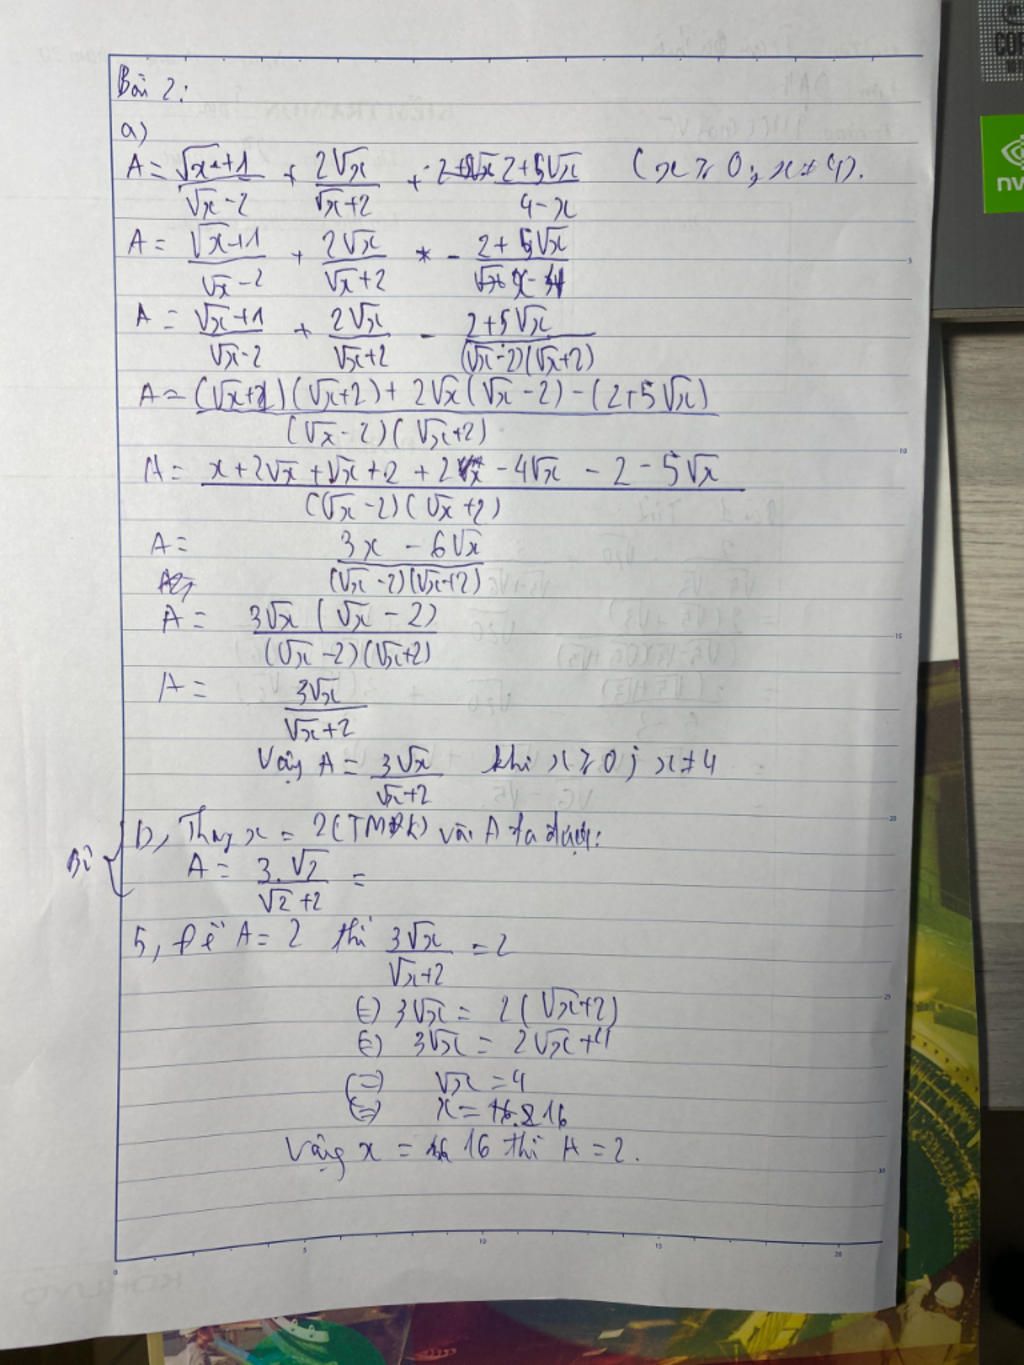 Bài 2:
a)
A = (√x+1)/(√x-2) + 2√x/(√x+2) + (2+5√x)/(4-x) (x ≥ 0; x ≠ 4).
A = (√x+1)/(√x-2) + 2√x/(√x+2) - (2+5√x)/(x-4)
A = (√x+1)/(√x-2) + 2√x/(√x+2) - (2+5√x)/((√x-2)(√x+2))
A = ((√x+1)(√x+2) + 2√x(√x-2) - (2+5√x))/((√x-2)(√x+2))
A = (x+2√x+√x+2+2x-4√x-2-5√x)/((√x-2)(√x+2))
A = (3x-6√x)/((√x-2)(√x+2))
A = 3√x(√x-2)/((√x-2)(√x+2))
A = 3√x/(√x+2)
Vậy A = 3√x/(√x+2) khi x ≥ 0; x ≠ 4
Bỏ { b, Thay x = 2 (TMĐK) vào A ta được:
A = 3.√2/(√2+2) =
b, Để A = 2 thì 3√x/(√x+2) = 2
(=) 3√x = 2(√x+2)
(=) 3√x = 2√x+4
(=) √x = 4
(=) x = 16
Vậy x = 16 thì A = 2.
5
10
15
20
25
30
0 5 10 15 20
COR
nv